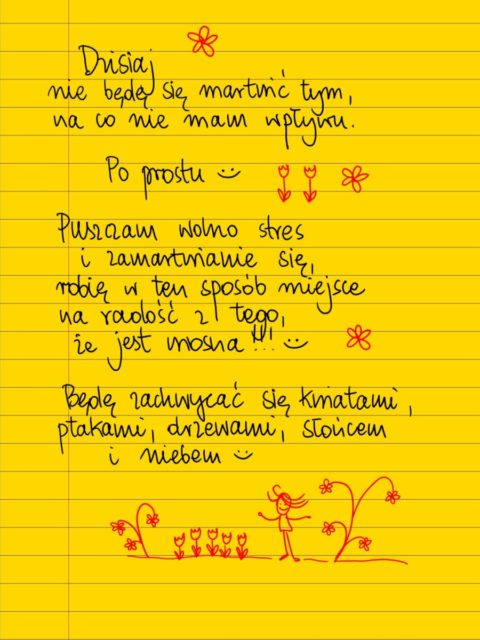 Dzisiaj
nie będę się martwić tym,
na co nie mam wpływu.
Po prostu :)
Puszczam wolno stres
i zamartwianie się,
robię w ten sposób miejsce
na radość z tego,
że jest wiosna!!! :)
Będę zachwycać się kwiatami,
ptakami, drzewami, słońcem
i niebem :)